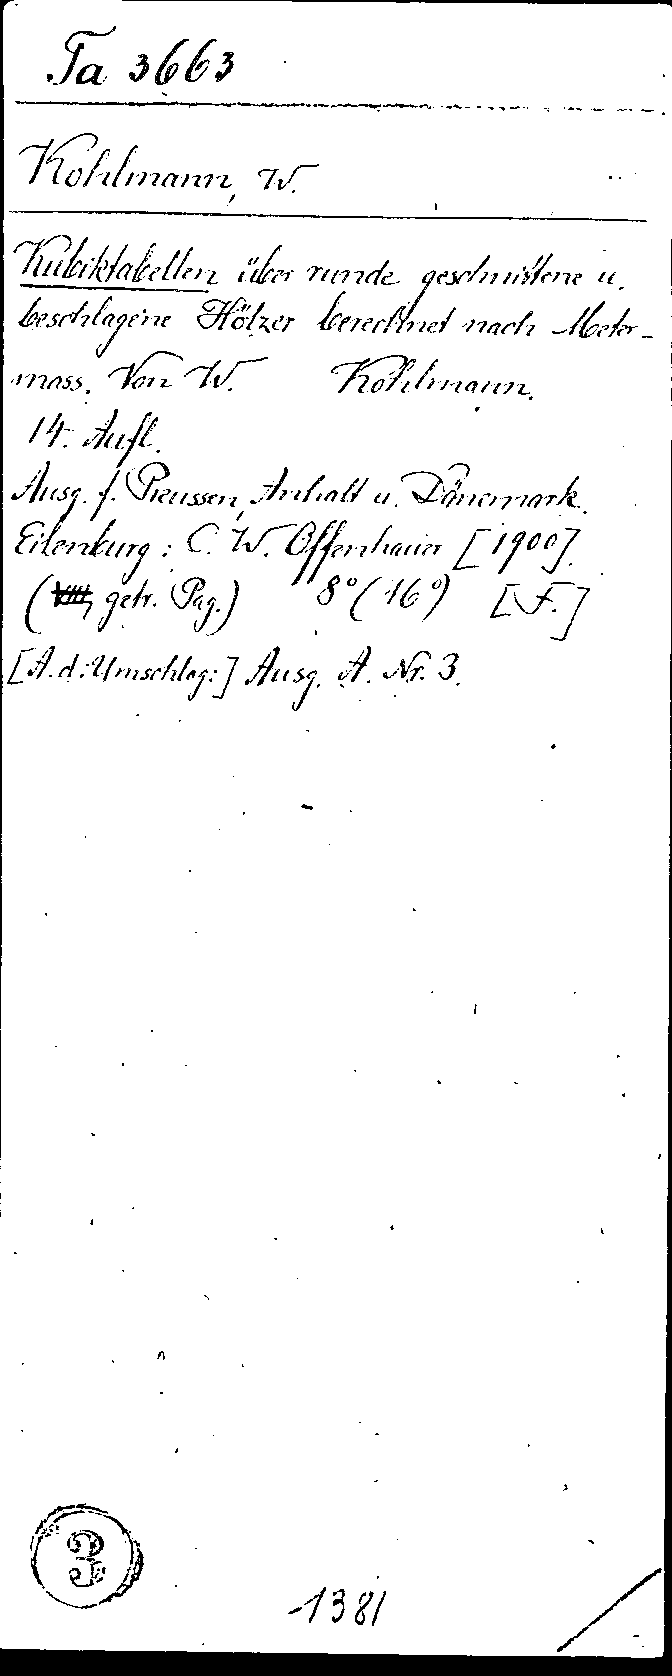 Ta 3663
Kohlmann, W.
Kubiktabellen über runde geschnittene u.
beschlagene Hölzer berechnet nach Meter-
mass. Von W. Kohlmann.
14. Aufl.
Ausg. f. Preussen, Anhalt u. Dänemark.
Eilenburg: C. W. Offenhauer [1900].
(getr. Pag.) 8° (16°) [F.]
[A. d. Umschlag:] Ausg. A. Nr. 3.
3
1381